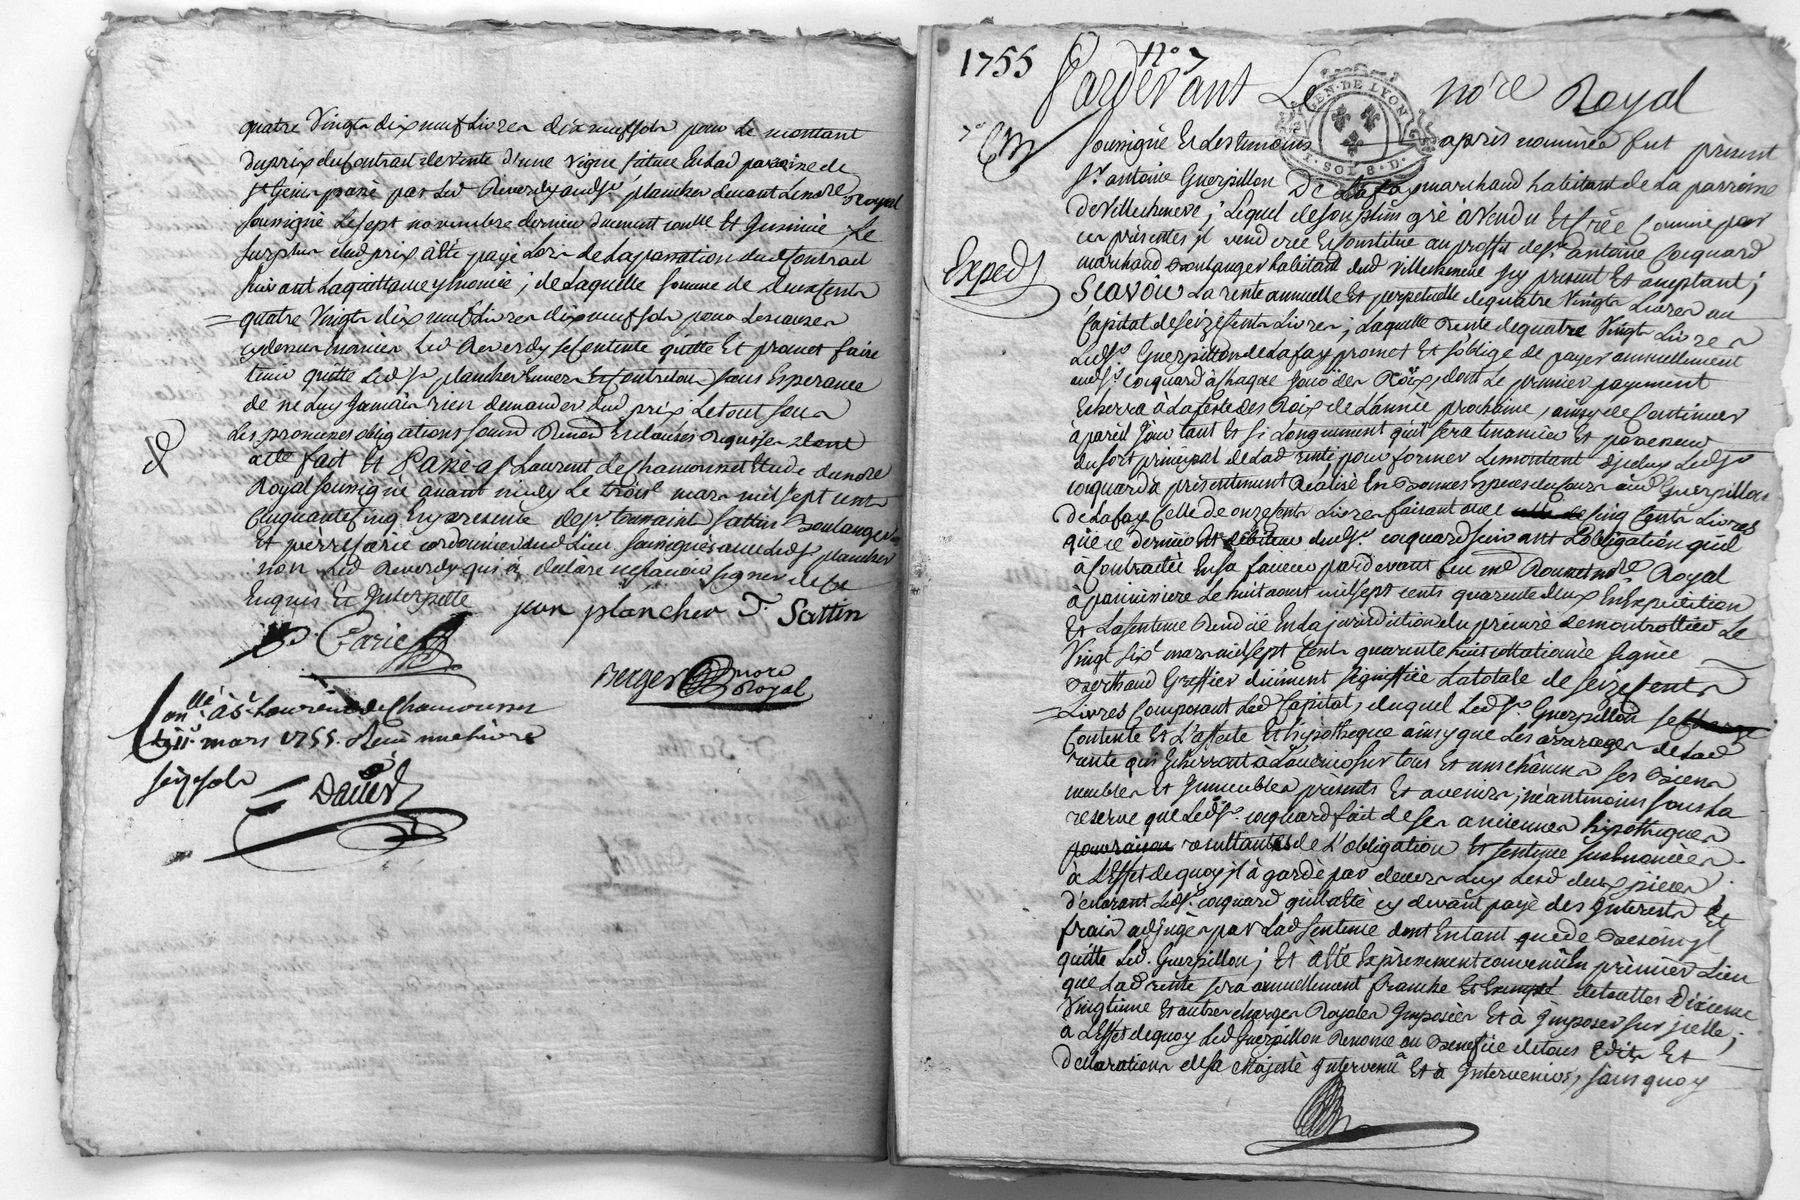 quatre Vingts dix neuf Livres dix neuf sols pour Le montant
du prix du Contrant de vente d'une vigne scituee En lad paroisse de
St genis passé par Led Reverdy aud sr plancher devant Le nore Royal
soussigné Le sept novembre dernier duement conllé Et Insinüé, Le
surplus dud prix a êté payé Lors de La passation dud Contract
suivant La quittance y ênoncée; de Laquelle somme de deux Cents
quatre Vingts dix neuf Livres dix neuf sols pour Les causes
cy dessus ênoncées Led Reverdy se Contente quitte Et promet faire
tenir quitte Led sr plancher Envers Et Contre tous sans Esperance
de ne Luy Jamais rien demander dud prix Le tout sous
Les promesses obligations soumd Renond Et clauses Requises dont
acte fait Et Passé a St Laurent de Chamousset Etude du nore
Royal soussigné avant midy Le trois mars mil sept cent
Cinquante Cinq En presence de sr toussaint sattin Boulanger
Et pierre carie cordonnier dud Lieu soussignés avec Led sr plancher
non Led Reverdy qui a déclaré ne sçavoir signer de Ce
Enquis Et Interpellé
jean plancher T. Sattin
P. Carie
Berger nore Royal
Conllé à St Laurent de Chamousset
Le 11e mars 1755. Reçu une livre
seize sols
1755 No 7
Pardevant Le nore Royal
GEN. DE LYON
1. SOL 8. D.
Soussigné Et Les temoins après nommés fut present
Sr antoine Guerpillon De Lafay marchand habitant de La parroisse
de Villecheneve; Lequel de son plein gré à vendu Et Créé Comme par
Ces présentes il vend crée Et Constitue au proffit de sr antoine Coquard
marchand Boulanger habitant dud Villecheneve icy present Et aceptant;
Exped
SCavoir La rente annuelle Et perpetuelle de quatre Vingts Livres au
Capital de seize Cents Livres; Laquelle Rente de quatre Vingts Livres
Led sr Guerpillon de Lafay promet Et s'oblige de payer annuellement
aud sr coquard à chaque jour des Roix, dont Le premier payement
Echerra à La feste des Roix de L'année prochaine, ainsy de Continuer
à pareil Jour tant Et si Longuement qu'il sera tenancier Et possesseur
du sort principal de Lad rente pour former Le montant diceluy Led sr
coquard à présentement Réalisé En Bonnes Especes de cours aud Guerpillon
de Lafay Celle de onze Cents Livres faisant avec cinq Cents Livres
que ce dernier débiteur dud sr coquard suivant L'obligation qu'il
à Contractée En sa faveur pardevant feu me Rounet nore Royal
à panissiere Le huit aout mil sept cents quarante deux En Expedition
Et La sentence Rendüe En La jurisdiction du prieuré de montrottier Le
Vingt six mars mil sept Cents quarante huit collationnée signée
Berthaud Greffier duëment signiffiée La totale de seize Cents
Livres Composant Led Capital, duquel Led sr Guerpillon se
Contente Et L'affecte Et hipotheque ainsy que Les arrerages de Lad
rente qui Echerront à L'avenir sur tous Et uns chacuns ses Biens
meubles Et Immeubles présents Et avenirs; néantmoins sous La
reserve que Led sr coquard fait de ses anciennes hipotheques
resultantes de L'obligation Et sentence susênoncées
à L'Effet de quoy il à gardé par devers Luy Lesd deux pieces
déclarant Led sr coquard qu'il a êté cy devant payé des Interests Et
frais adjugés par Lad sentence dont Entant que de Besoin jl
quitte Led. Guerpillon; Et à êté Expressement convenu En prèmier Lieu
que Lad rente sera annuellement franche Et Exempte de touttes Dixieme
Vingtieme Et autres charges Royales Imposées Et à Imposer sur jcelle;
à L'Effet de quoy Led Guerpillon Renonce au Benefice de tous Edits Et
Déclarations de sa Majesté Intervenus Et à Intervenirs, sans quoy